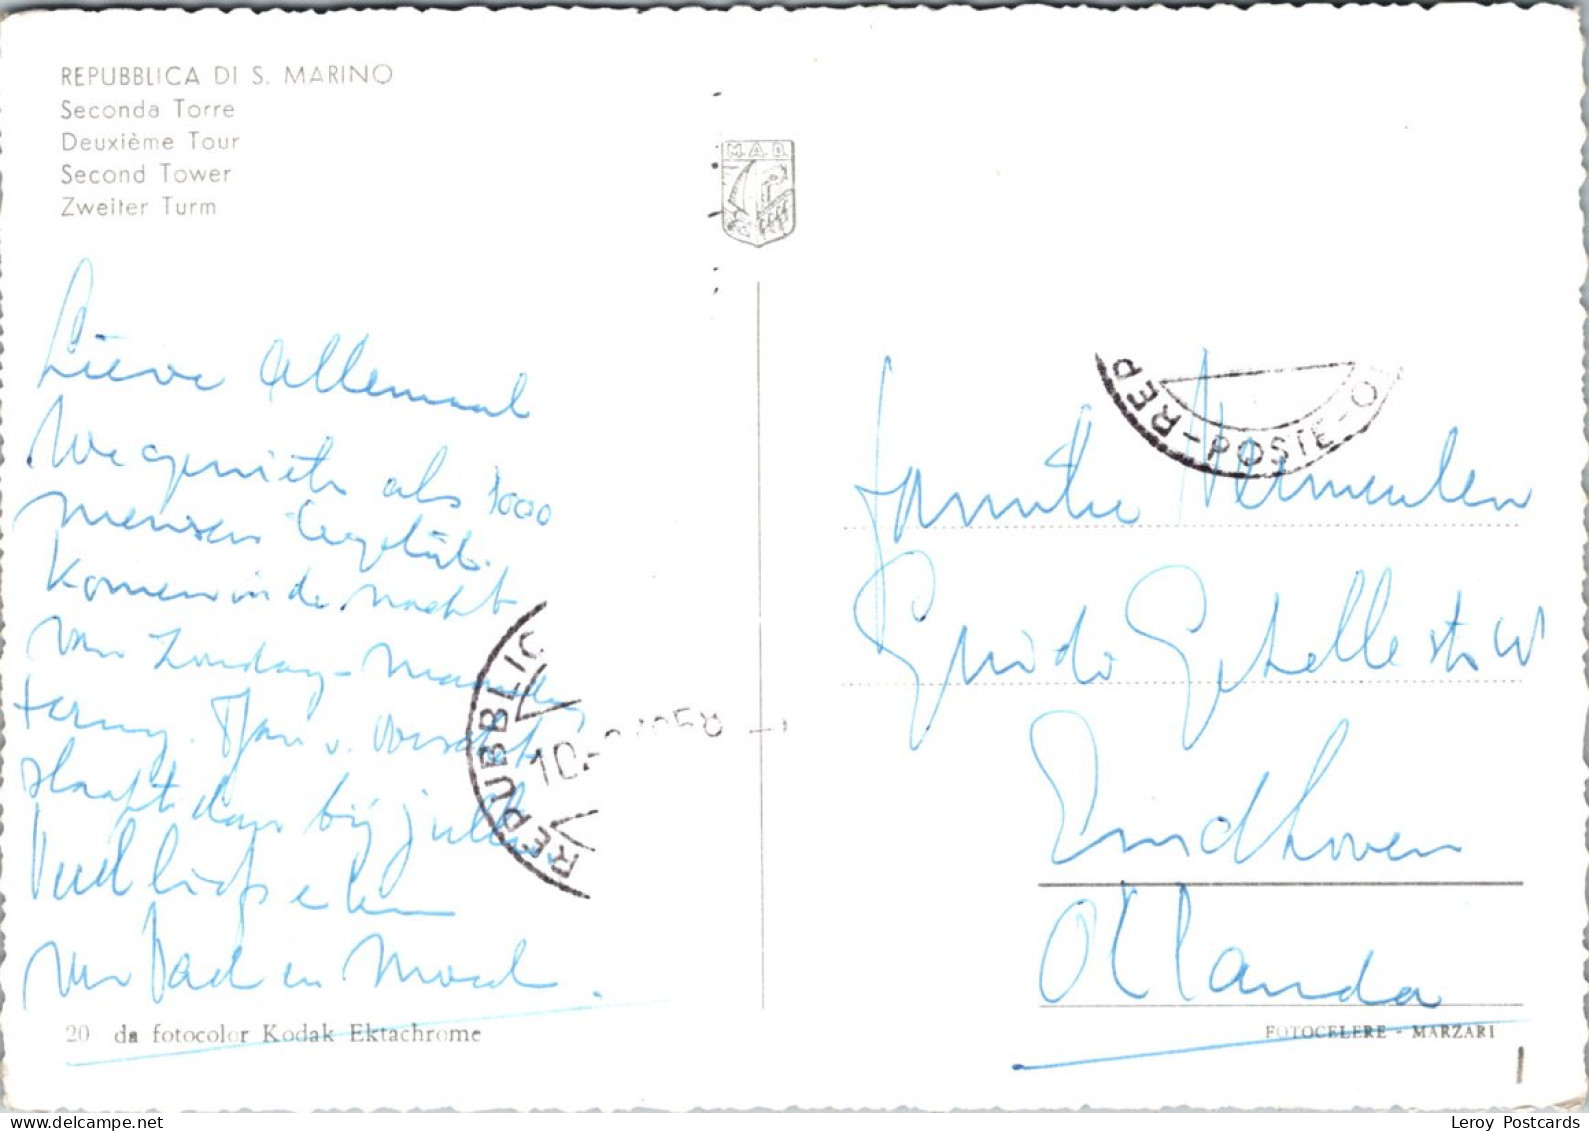 REPUBBLICA DI S. MARINO
Seconda Torre
Deuxième Tour
Second Tower
Zweiter Turm
M.A.D.
Lieve Allemaal
We genieten als 1000
mensen tegelijk.
Komen in de nacht
van Zondag - Maandag
terug. v.
slaapt dan bij jullie
Veel liefs
van en
REPUBBLIC
10
20 da fotocolor Kodak Ektachrome
REP - POSTE - O
Familie Vermeulen
Guido Gezelle str
Eindhoven
Ollanda
FOTOCELERE - MARZARI
Leroy Postcards